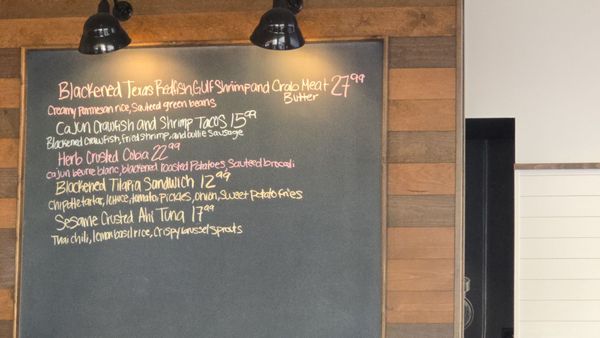 Blackened Texas Redfish, Gulf Shrimp and Crab Meat 27⁹⁹
Butter
Creamy parmesan rice, Sauteed green beans
Cajun Crawfish and Shrimp Tacos 15⁹⁹
Blackened Crawfish, fried shrimp, and Sausage
Herb Crusted Cobia 22⁹⁹
cajun beurre blanc, blackened roasted Potatoes, Sauteed brocoli
Blackened Tilapia Sandwich 12⁹⁹
chipotle tartar, lettuce, tomato, Pickles, onion, Sweet Potato fries
Sesame Crusted Ahi Tuna 17⁹⁹
Thai chili, lemon basil rice, Crispy brussel sprouts